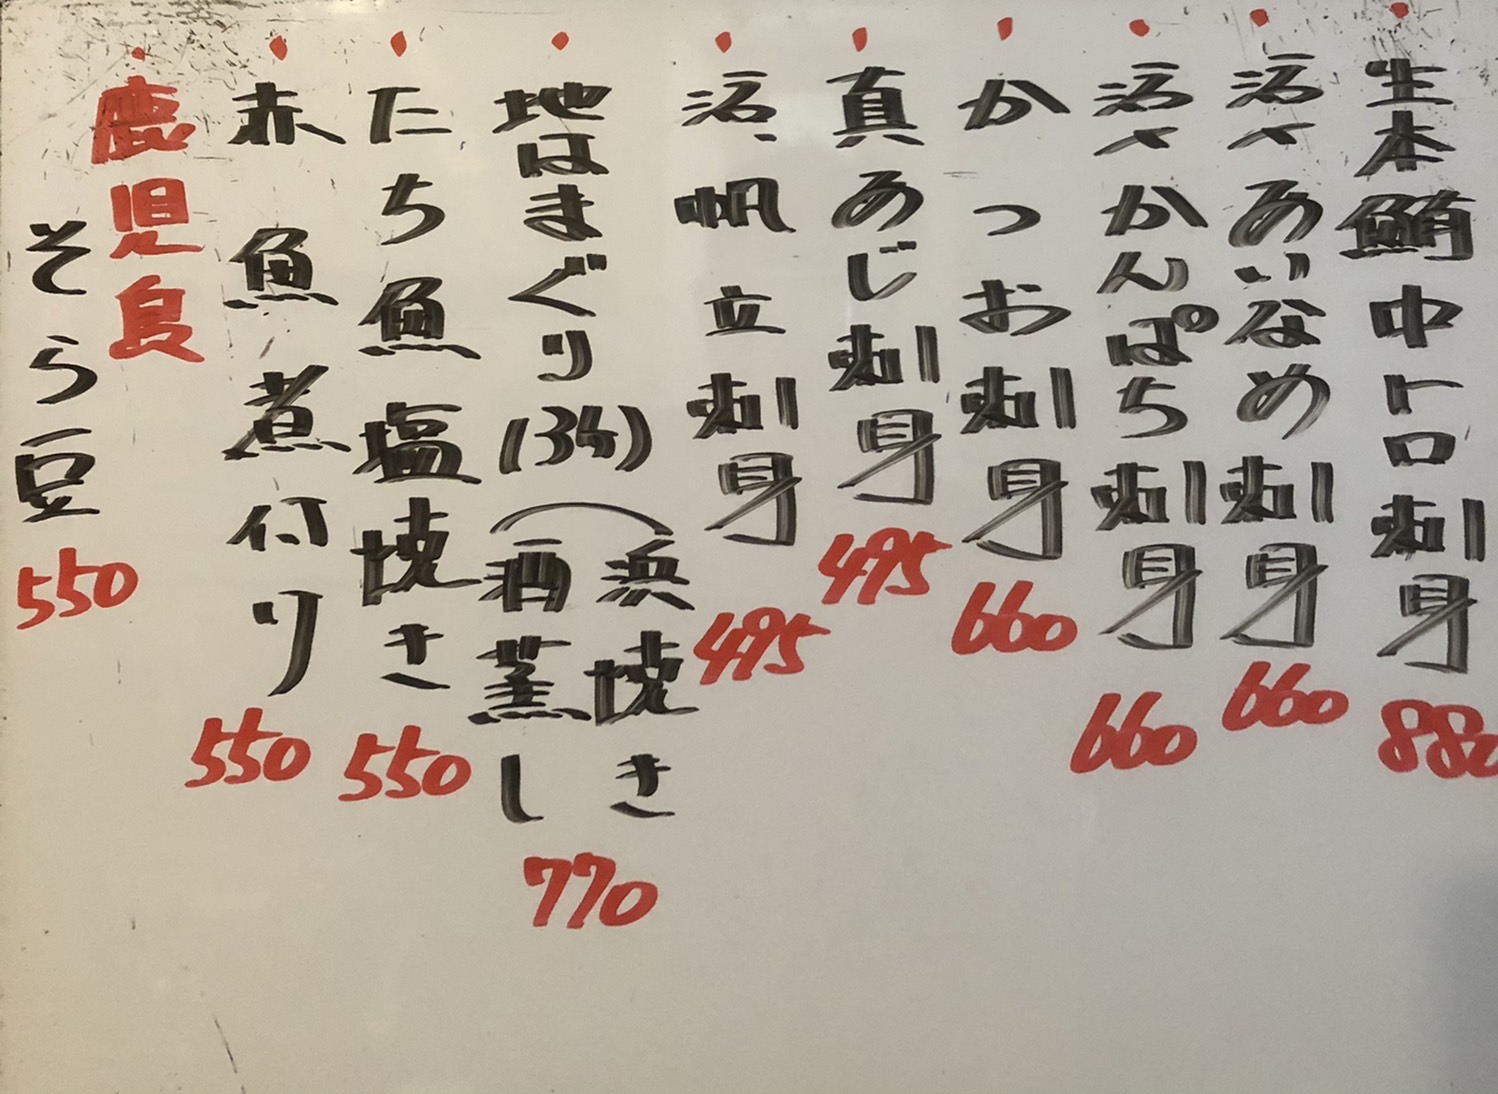 生本鮪中トロ刺身 880
活〆あいなめ刺身 660
活〆かんぱち刺身 660
かつお刺身 660
真あじ刺身 495
活帆立刺身 495
地はまぐり(3ケ)
浜焼き
酒蒸し
770
たち魚塩焼き 550
赤魚煮付り 550
鹿児島
そら豆 550